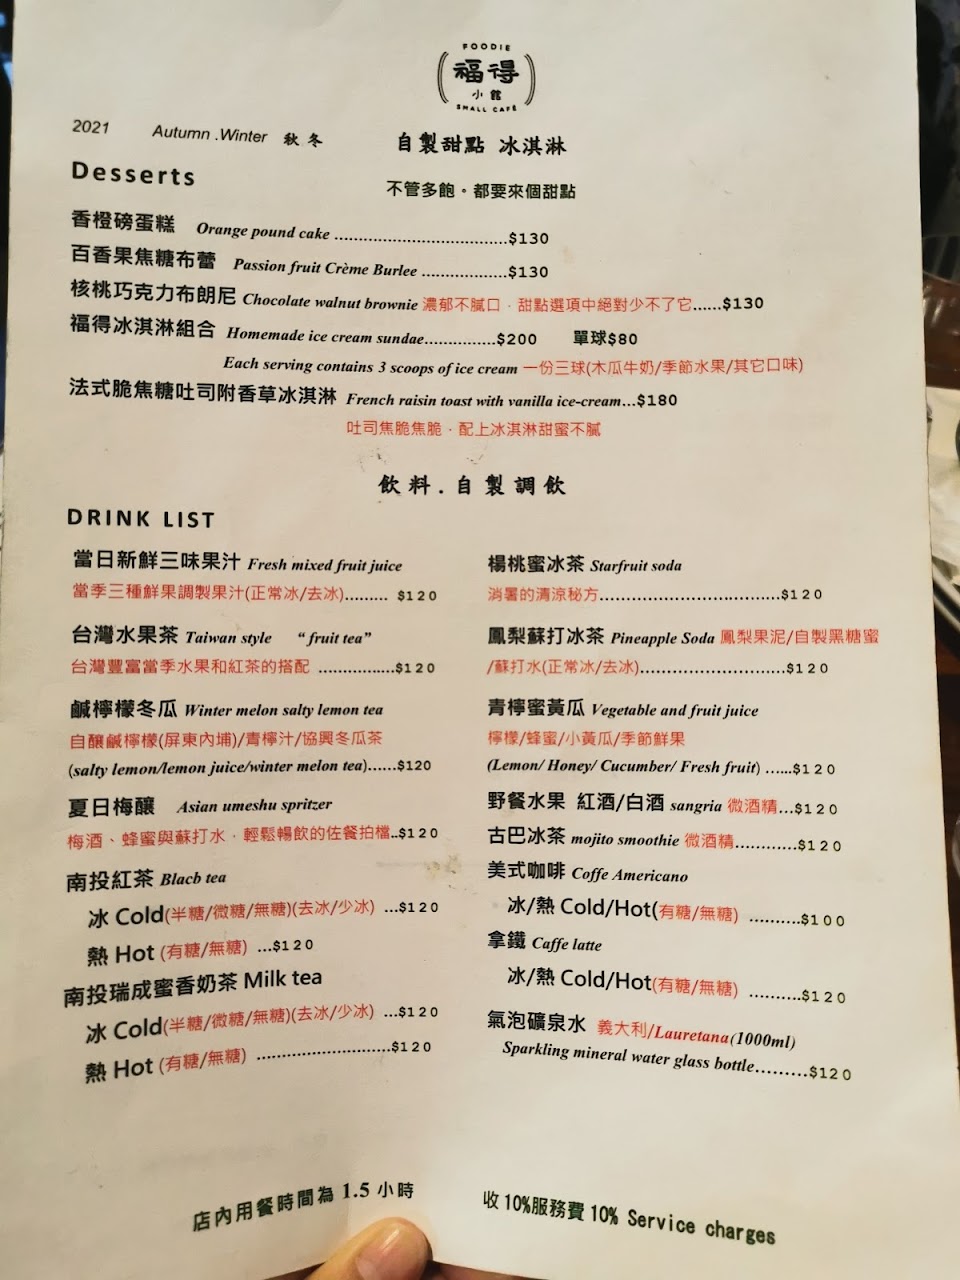 FOODIE
福得
小館
SMALL CAFÉ
2021 Autumn .Winter 秋冬
自製甜點 冰淇淋
Desserts
不管多飽。都要來個甜點
香橙磅蛋糕 Orange pound cake ....................................$130
百香果焦糖布蕾 Passion fruit Crème Burlee ..................$130
核桃巧克力布朗尼 Chocolate walnut brownie 濃郁不膩口．甜點選項中絕對少不了它......$130
福得冰淇淋組合 Homemade ice cream sundae...............$200 單球$80
Each serving contains 3 scoops of ice cream 一份三球(木瓜牛奶/季節水果/其它口味)
法式脆焦糖吐司附香草冰淇淋 French raisin toast with vanilla ice-cream...$180
吐司焦脆焦脆．配上冰淇淋甜蜜不膩
飲料.自製調飲
DRINK LIST
當日新鮮三味果汁 Fresh mixed fruit juice
當季三種鮮果調製果汁(正常冰/去冰)......... $120
台灣水果茶 Taiwan style “ fruit tea”
台灣豐富當季水果和紅茶的搭配 ................$120
鹹檸檬冬瓜 Winter melon salty lemon tea
自釀鹹檸檬(屏東內埔)/青檸汁/協興冬瓜茶
(salty lemon/lemon juice/winter melon tea)......$120
夏日梅釀 Asian umeshu spritzer
梅酒、蜂蜜與蘇打水．輕鬆暢飲的佐餐拍檔..$120
南投紅茶 Blacb tea
冰 Cold(半糖/微糖/無糖)(去冰/少冰) ...$120
熱 Hot (有糖/無糖) ...$120
南投瑞成蜜香奶茶 Milk tea
冰 Cold(半糖/微糖/無糖)(去冰/少冰) ...$120
熱 Hot (有糖/無糖) ............................$120
楊桃蜜冰茶 Starfruit soda
消暑的清涼秘方......................................$120
鳳梨蘇打冰茶 Pineapple Soda 鳳梨果泥/自製黑糖蜜
/蘇打水(正常冰/去冰)..............................$120
青檸蜜黃瓜 Vegetable and fruit juice
檸檬/蜂蜜/小黃瓜/季節鮮果
(Lemon/ Honey/ Cucumber/ Fresh fruit) ......$120
野餐水果 紅酒/白酒 sangria 微酒精...$120
古巴冰茶 mojito smoothie 微酒精............$120
美式咖啡 Coffe Americano
冰/熱 Cold/Hot(有糖/無糖) ..........$100
拿鐵 Caffe latte
冰/熱 Cold/Hot(有糖/無糖) ..........$120
氣泡礦泉水 義大利/Lauretana(1000ml)
Sparkling mineral water glass bottle.........$120
店內用餐時間為 1.5 小時
收 10%服務費 10% Service charges